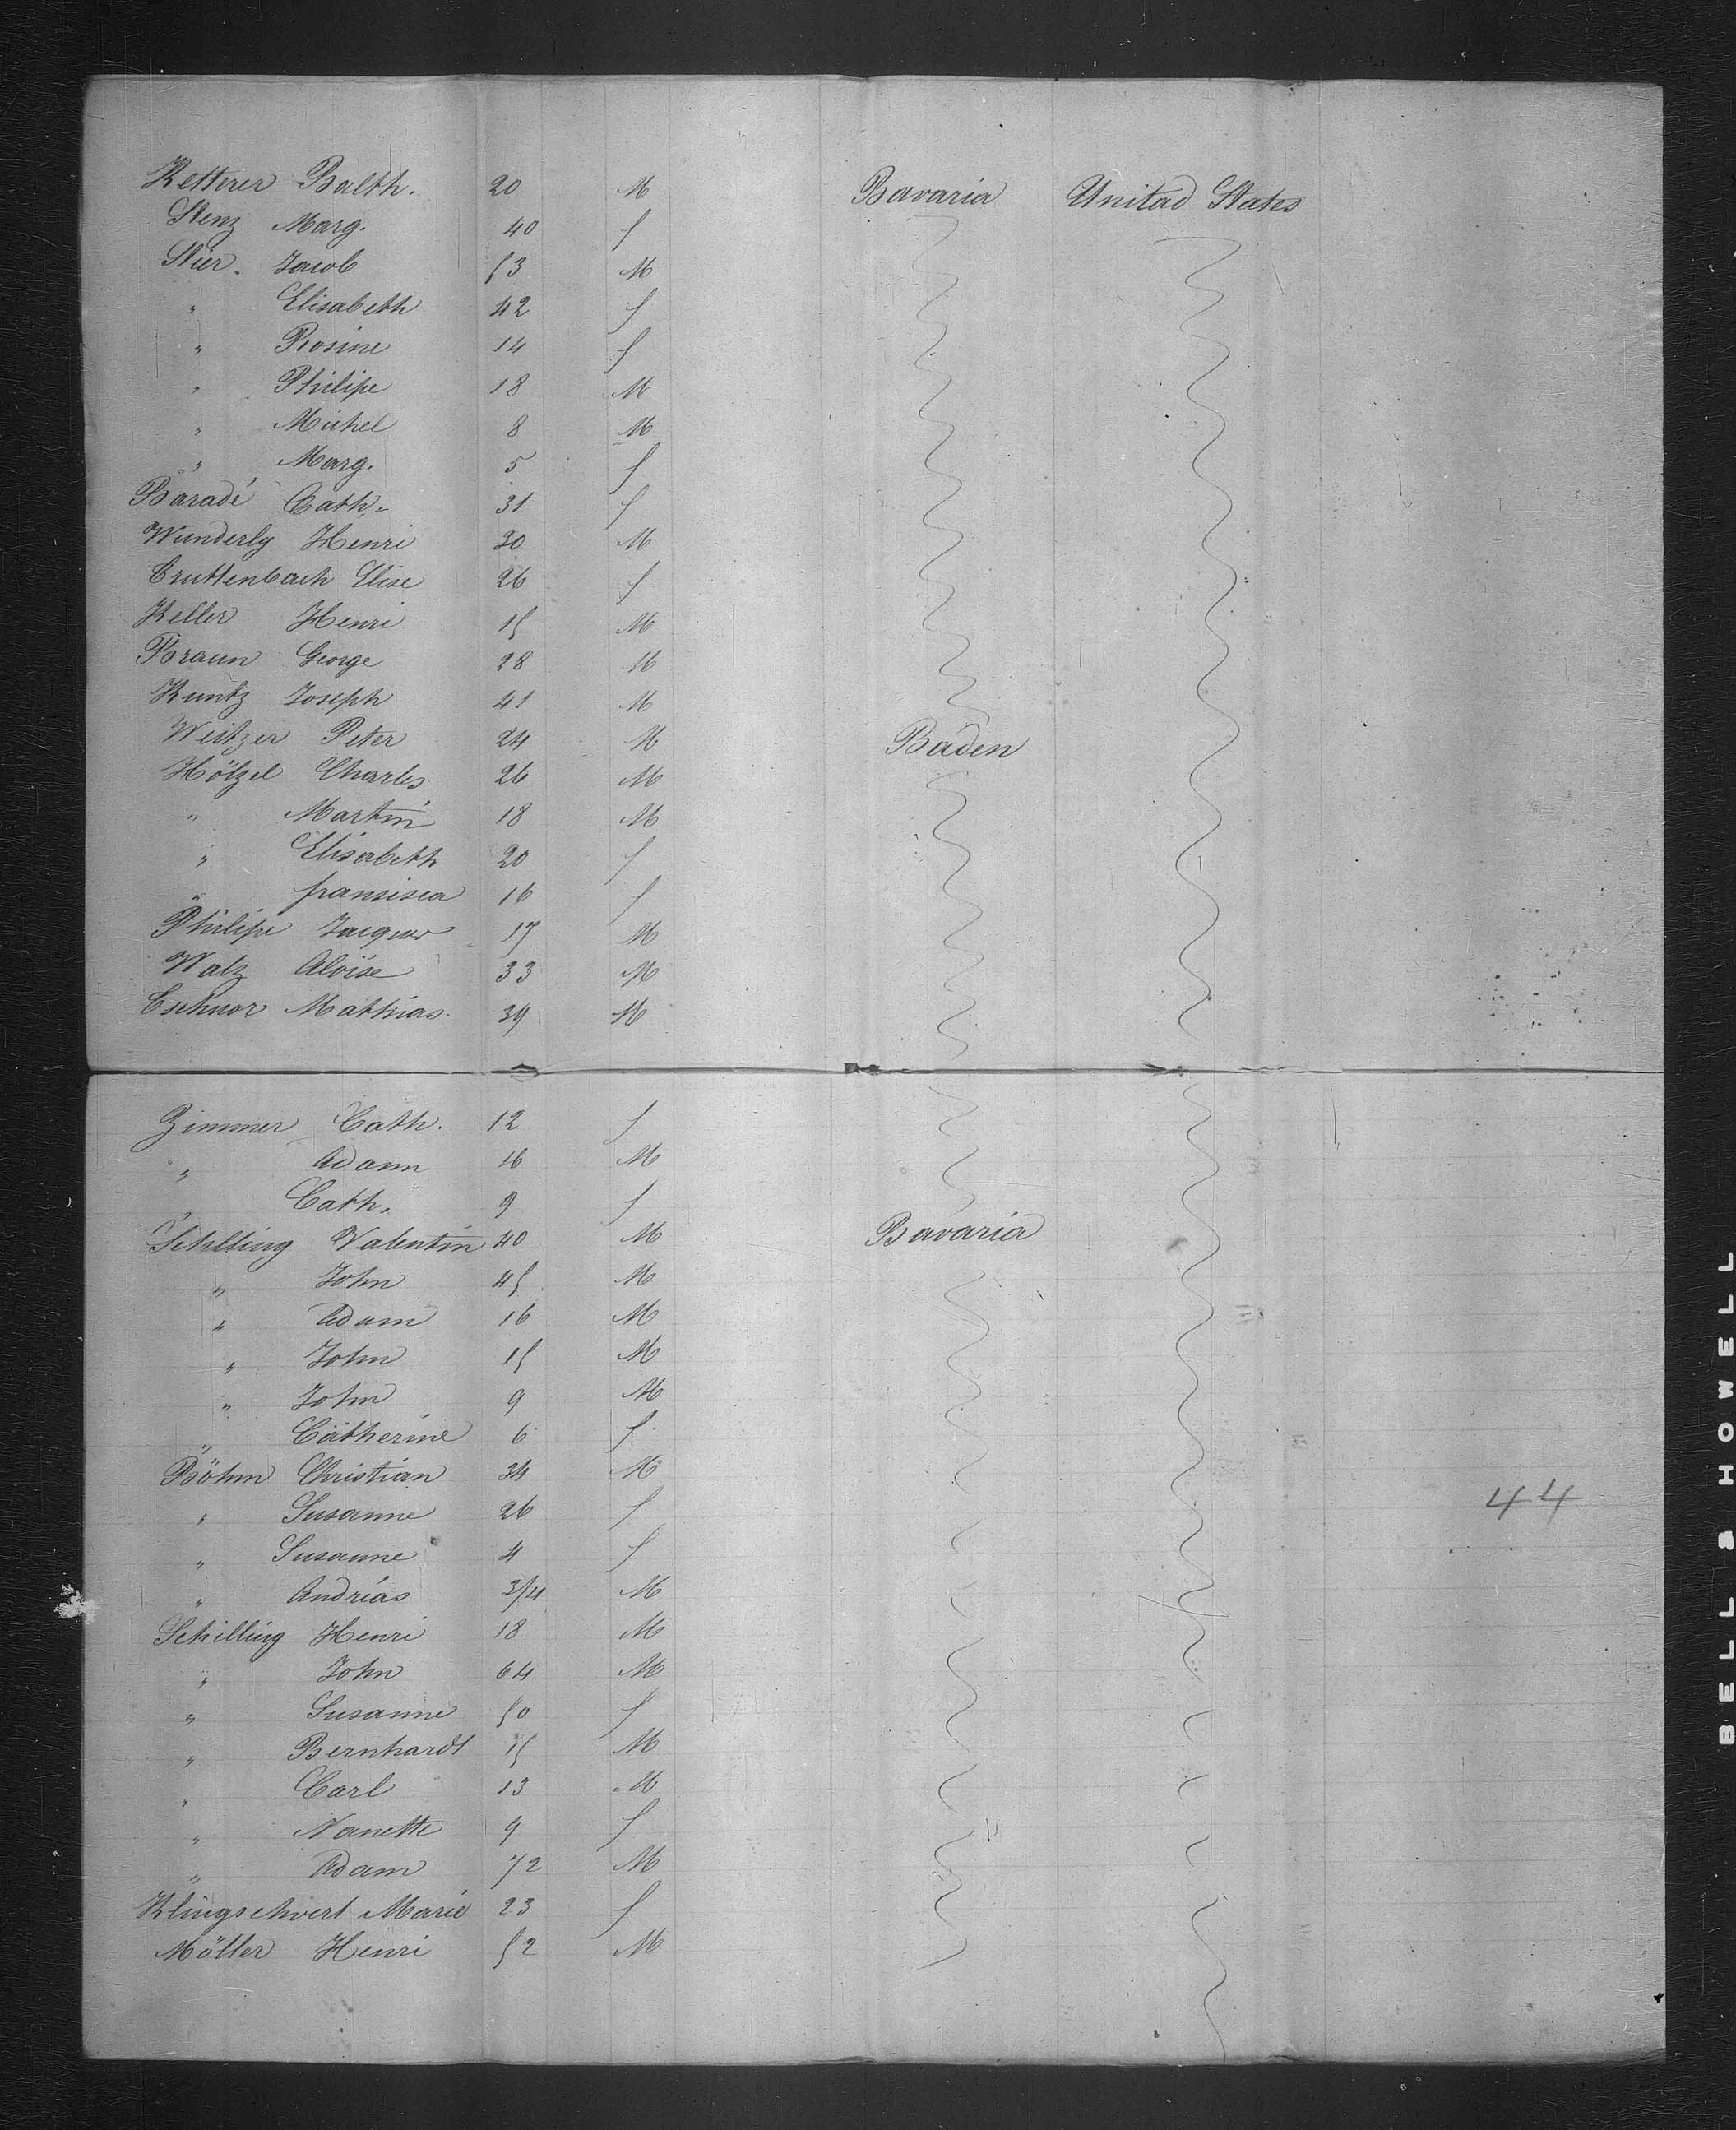 Ketterer Balth. 20 M Bavaria Unitad States
Stenz Marg. 40 f
Stier. Jacob 53 M
" Elisabeth 42 f
" Rosine 14 f
" Philipe 18 M
" Michel 8 M
" Marg. 5 f
Baradé Cath. 31 f
Wunderly Henri 30 M
Cruttenbach Elise 26 f
Keller Henri 15 M
Braun George 28 M
Kuntz Joseph 41 M
Weitzer Peter 24 M Baden
Hölzel Charles 26 M
" Martin 18 M
" Elisabeth 20 f
" fransisca 16 f
Philipe Jacques 17 M
Walz Aloïse 33 M
Mathias. 39 M
Zimmer Cath. 12 f
" Adam 16 M
Cath. 9 f
Schilling Valentin 40 M Bavaria
" John 45 M
" Adam 16 M
" John 15 M
" John 9 M
" Catherine 6 f
Böhm Christian 34 M
" Susanne 26 f
44
" Susanne 4 f
" Andrias 3/4 M
Schilling Henri 18 M
" John 64 M
" Susanne 50 f
" Bernhardt 15 M
" Carl 13 M
" Nanette 9 f
" Adam 72 M
Klingschvert Marie 23 f
Möller Henri 52 M
BELL & HOWELL